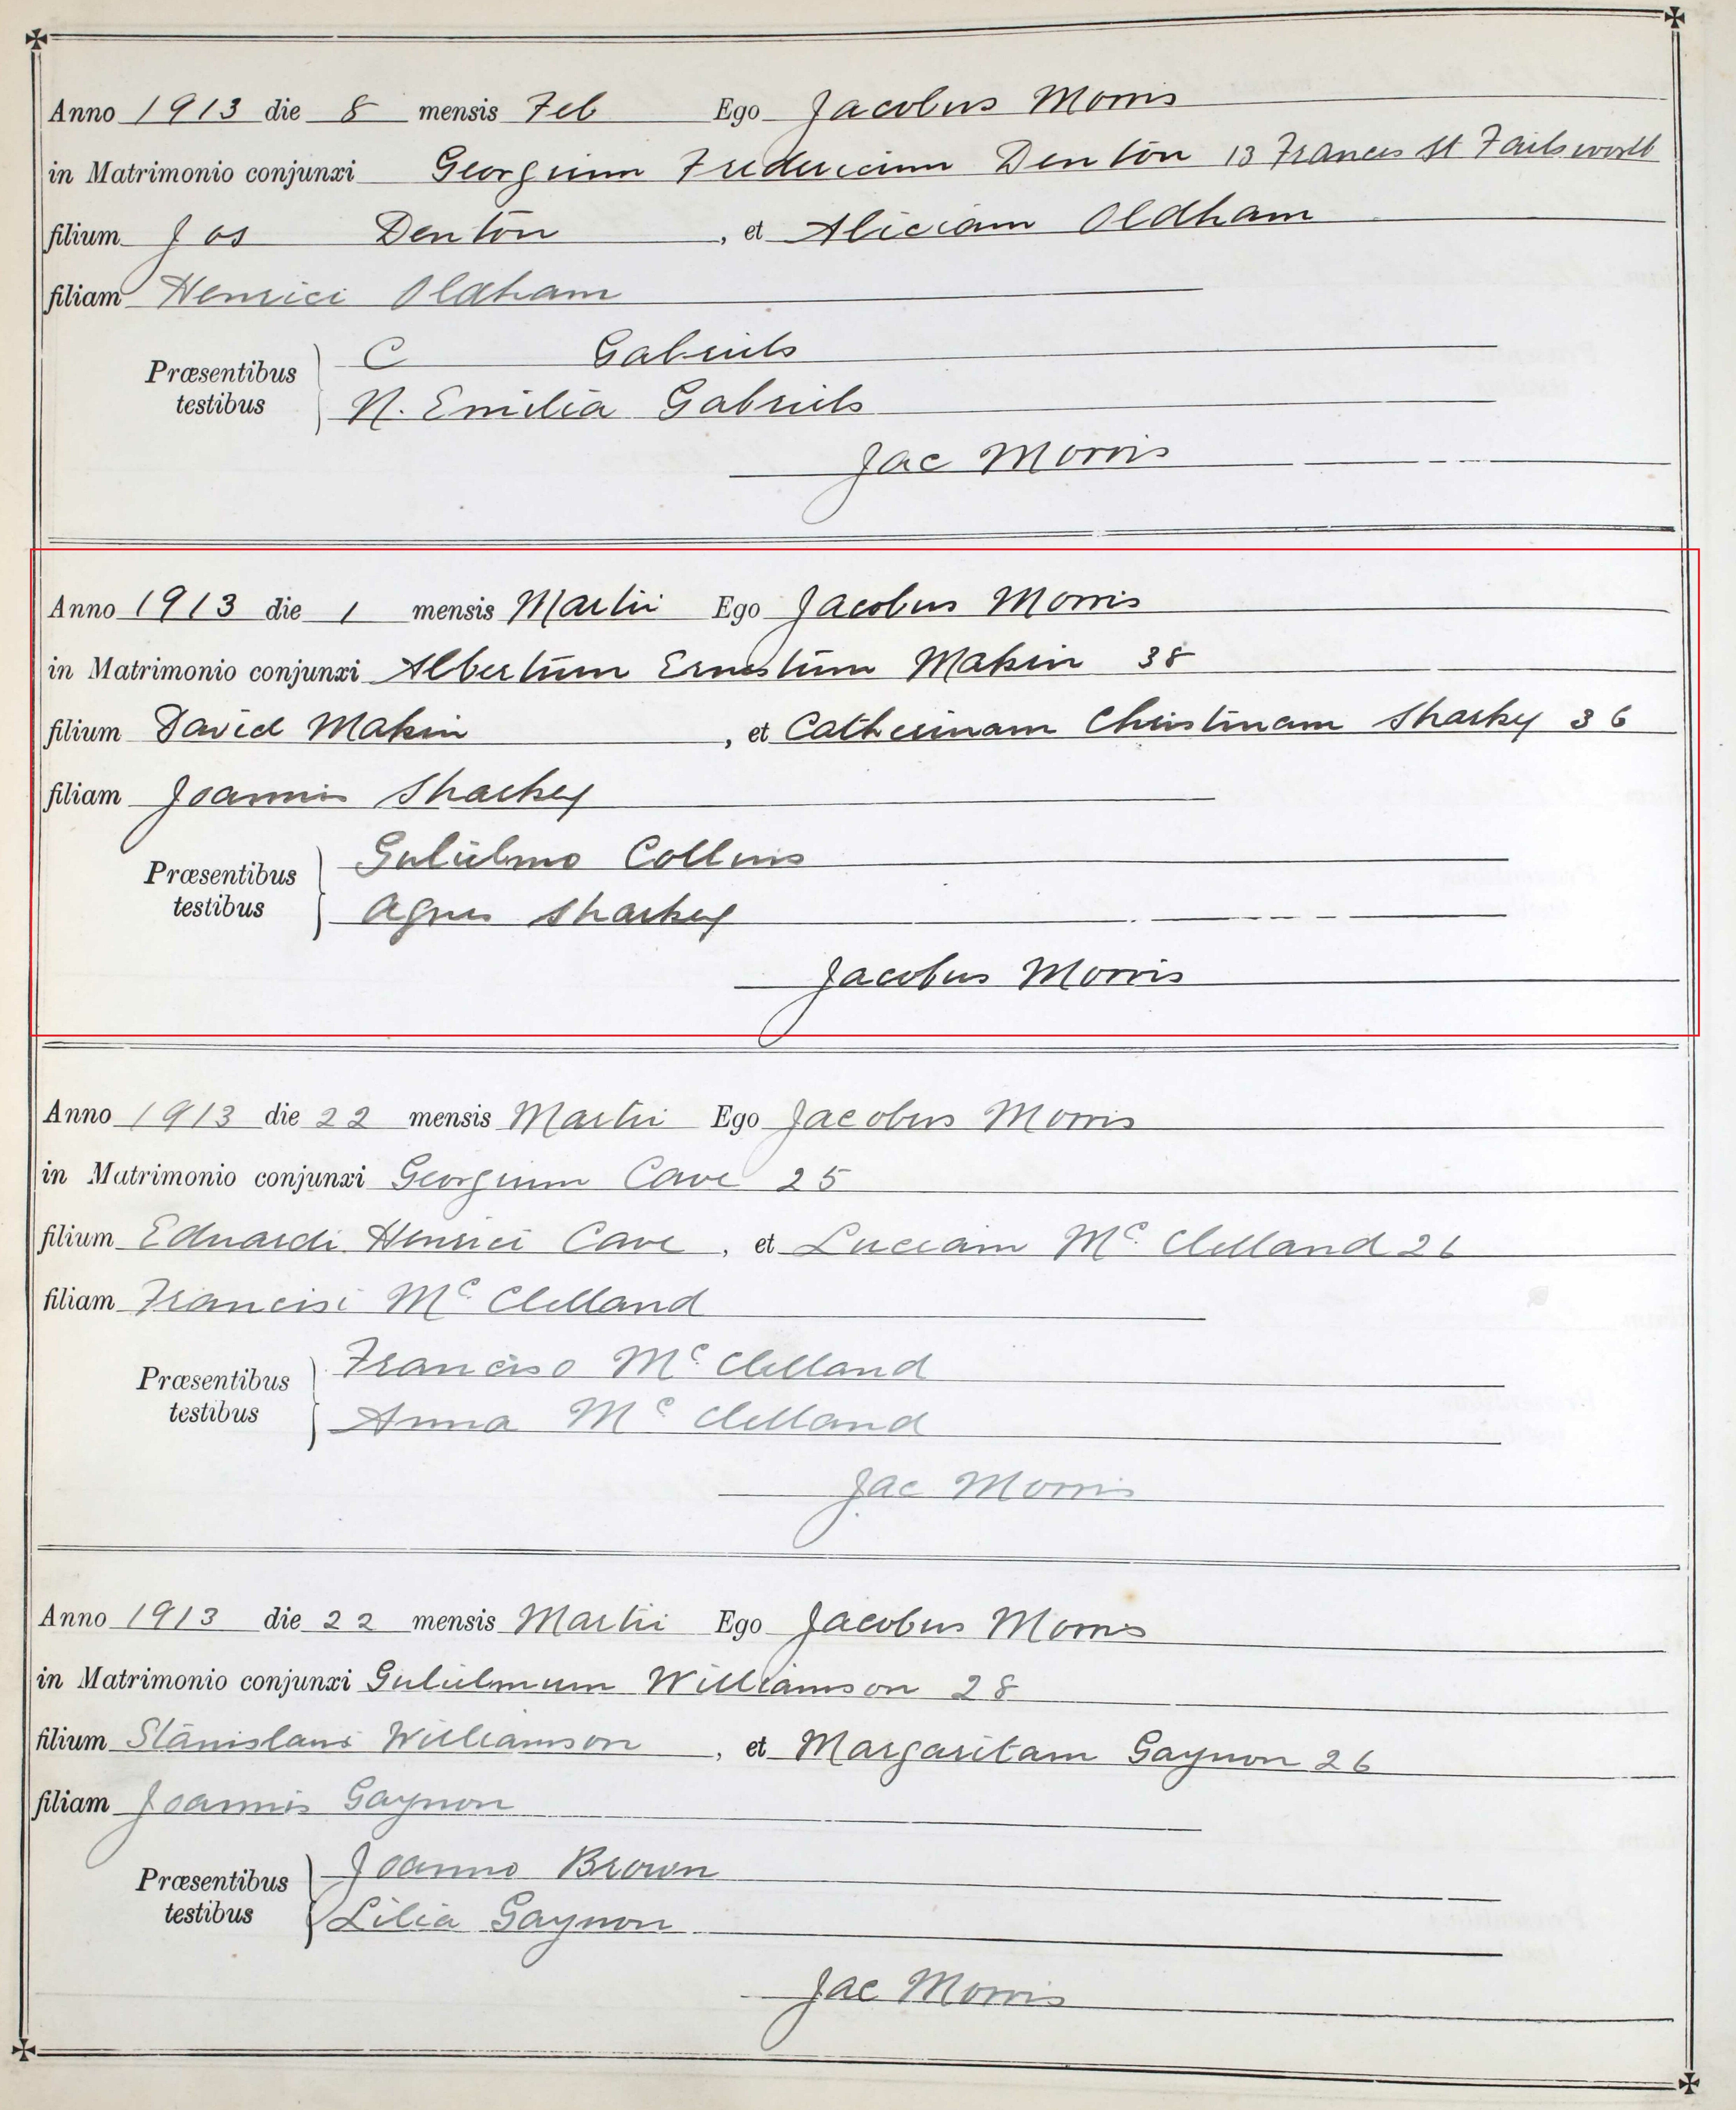 Anno 1913 die 8 mensis Feb Ego Jacobus Morris
in Matrimonio conjunxi Georgium Fredericum Denton 13 Frances St Failsworth
filium Jos Denton, et Aliciam Oldham
filiam Henrici Oldham
Præsentibus testibus C Gabriels
N. Emilia Gabriels
Jac Morris
Anno 1913 die 1 mensis Martii Ego Jacobus Morris
in Matrimonio conjunxi Albertum Ernestum Makin 38
filium David Makin, et Catherinam Christinam Sharkey 36
filiam Joannis Sharkey
Præsentibus testibus Gulielmo Collins
Agnes Sharkey
Jacobus Morris
Anno 1913 die 22 mensis Martii Ego Jacobus Morris
in Matrimonio conjunxi Georgium Cave 25
filium Eduardi Henrici Cave, et Luciam Mc Clelland 26
filiam Francisi Mc Clelland
Præsentibus testibus Franciso Mc Clelland
Anna Mc Clelland
Jac Morris
Anno 1913 die 22 mensis Martii Ego Jacobus Morris
in Matrimonio conjunxi Gulielmum Williamson 28
filium Stanislaus Williamson, et Margaritam Gaynon 26
filiam Joannis Gaynon
Præsentibus testibus Joanno Brown
Lilia Gaynon
Jac Morris